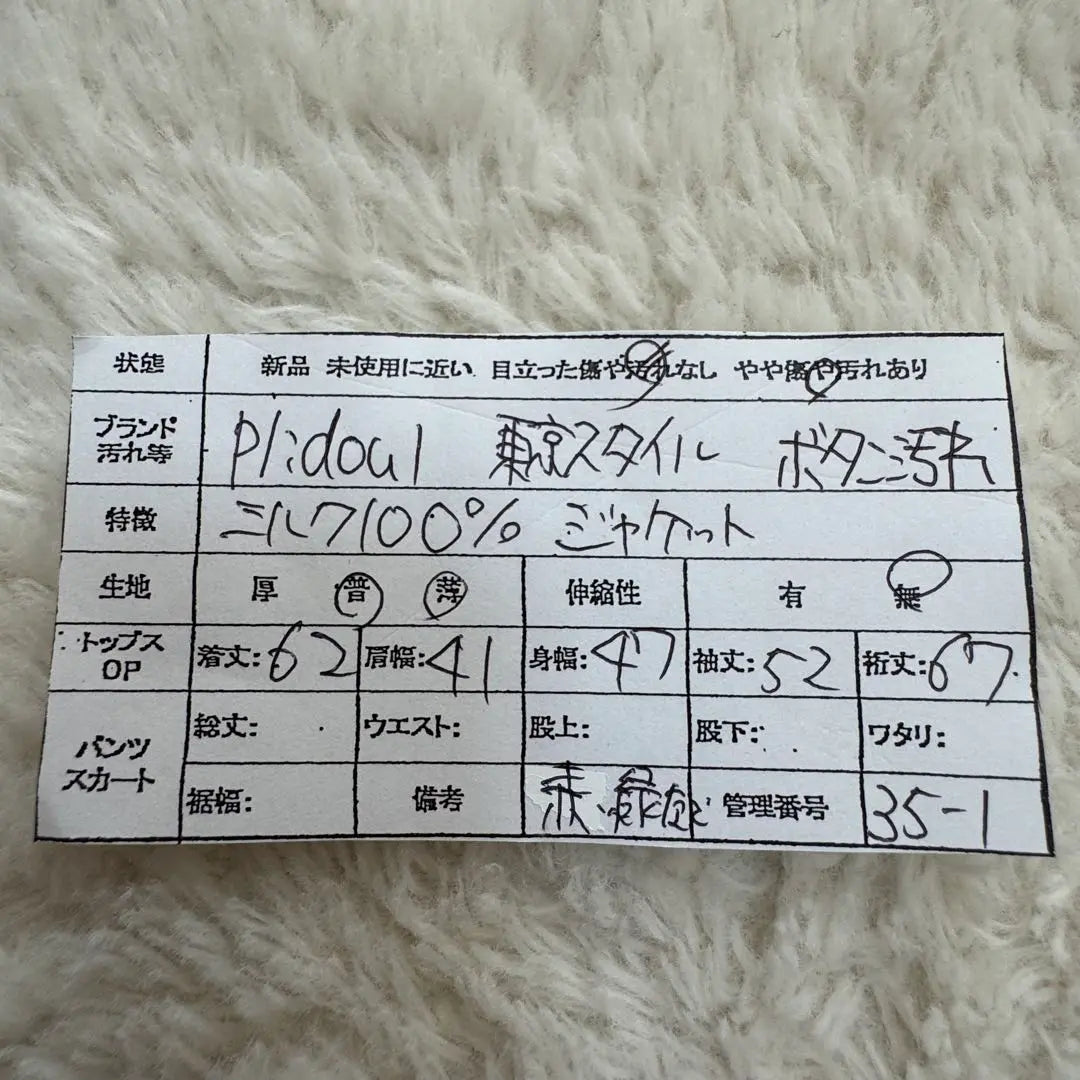 状態 新品 未使用に近い 目立った傷や汚れなし やや傷や汚れあり
ブランド 汚れ等 plidoul 東京スタイル ボタン汚れ
特徴 シルク100% ジャケット
生地 厚 普 薄 伸縮性 有 無
トップス OP 着丈:62 肩幅:41 身幅:47 袖丈:52 裄丈:67
パンツ スカート 総丈: ウエスト: 股上: 股下: ワタリ:
裾幅: 備考 赤、緑など 管理番号 35-1